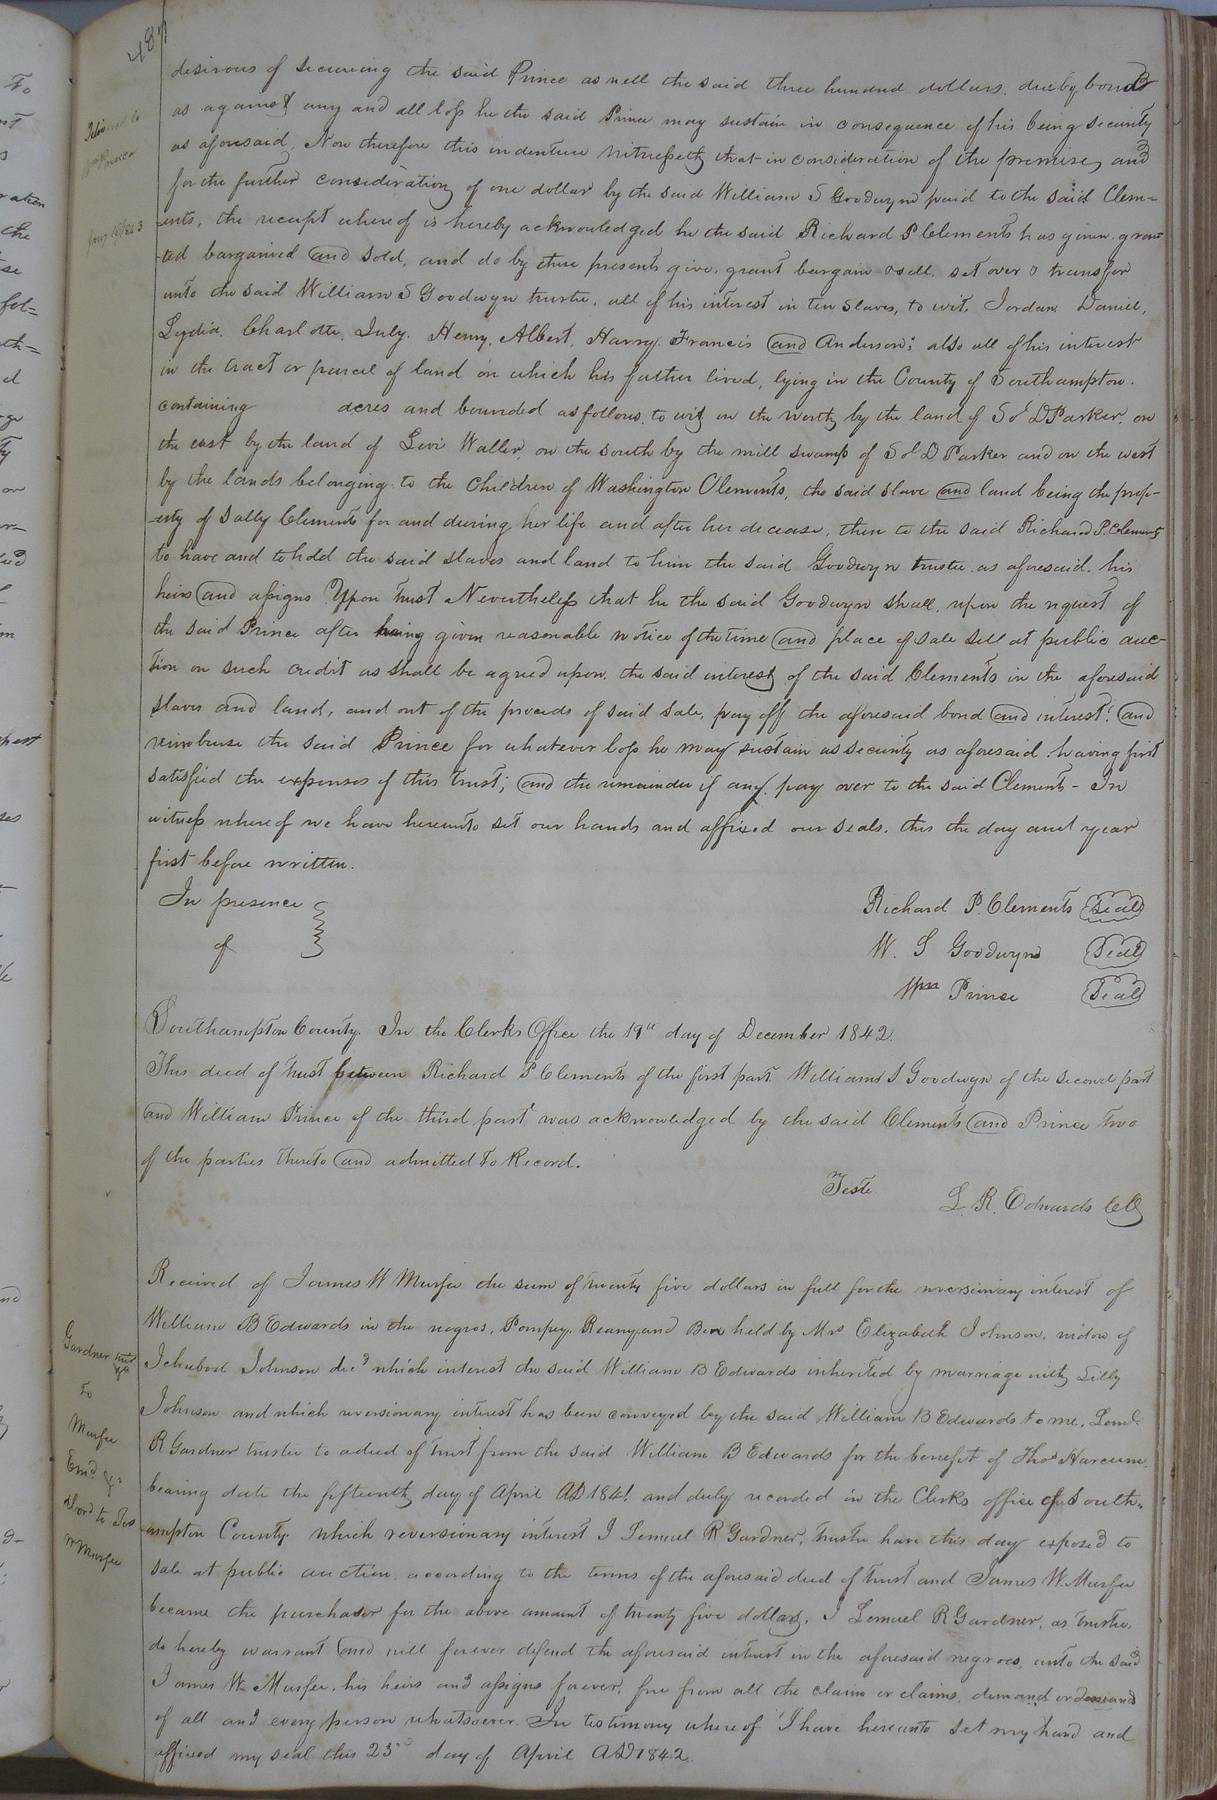 487
desirous of securing the said Prince as well the said three hundred dollars, due by bond
as against any and all loss he the said Prince may sustain in consequence of his being security
as aforesaid, Now therefore this indenture witnesseth that in consideration of the premises and
for the further consideration of one dollar by the said William S Goodwyn paid to the said Clem=
=ents, the receipt whereof is hereby acknowledged he the said Richard P Clements has given gran=
-ted bargained and sold, and do by these presents give, grant bargain & sell, set over & transfer
unto the said William S Goodwyn trustee, all of his interest in ten slaves, to wit, Jordan Daniel,
Lydia, Charlotte, July, Henry, Albert, Harry, Francis and Anderson; also all of his interest
in the tract or parcel of land on which his father lived, lying in the County of Southampton.
containing acres and bounded as follows, to wit, on the north by the land of Sol D Parker, on
the east by the land of Levi Waller, on the south by the mill swamp of Sol D Parker and on the west
by the lands belonging to the Children of Washington Clements, the said slave and land being the prop-
-erty of Sally Clements for and during her life and after her decease, then to the said Richard P. Clements
to have and to hold the said slaves and land to him the said Goodwyn trustee as aforesaid, his
heirs and assigns Upon trust Nevertheless that he the said Goodwyn shall, upon the request of
the said Prince after having given reasonable notice of the time and place of sale sell at public auc-
tion on such credit as shall be agreed upon, the said interest of the said Clements in the aforesaid
slaves and land, and out of the proceeds of said sale, pay off the aforesaid bond and interest; and
reimburse the said Prince for whatever loss he may sustain as security as aforesaid, having first
satisfied the expenses of this trust; and the remainder if any, pay over to the said Clements - In
witness whereof we have hereunto set our hands and affixed our seals, this the day and year
first before written.
In presence
of
Richard P. Clements Seal
W. S Goodwyn Seal
Wm Prince Seal
Southampton County. In the Clerks Office the 19th day of December 1842.
This deed of trust between Richard P Clements of the first part Williams S Goodwyn of the second part
and William Prince of the third part was acknowledged by the said Clements and Prince two
of the parties thereto and admitted to Record.
Teste
L. R. Edwards CC
Received of James W Murfee the sum of twenty five dollars in full for the reversionary interest of
William B Edwards in the negros, Pompey, Reany, and Ben held by Mrs Elizabeth Johnson, widow of
Ichabod Johnson decd which interest the said William B Edwards inherited by marriage with Lilly
Johnson and which reversionary interest has been conveyed by the said William B Edwards to me, Leml
R Gardner trustee to a deed of trust from the said William B Edwards for the benefit of Thos Harcum
bearing date the fifteenth day of April AD 1841 and duly recorded in the Clerks office of South=
-ampton County which reversionary interest I Lemuel R Gardner, trustee have this day exposed to
sale at public auction according to the terms of the aforesaid deed of trust and James W. Murfee
became the purchaser for the above amount of twenty five dollars, I Lemuel R Gardner, as trustee,
do hereby warrant and will forever defend the aforesaid interest in the aforesaid negroes, unto the said
James W. Murfee, his heirs and assigns forever, free from all the claim or claims, demand or demands
of all and every person whatsoever. In testimony whereof I have hereunto set my hand and
affixed my seal this 23rd day of April AD 1842.
Gardner
To
Murfee